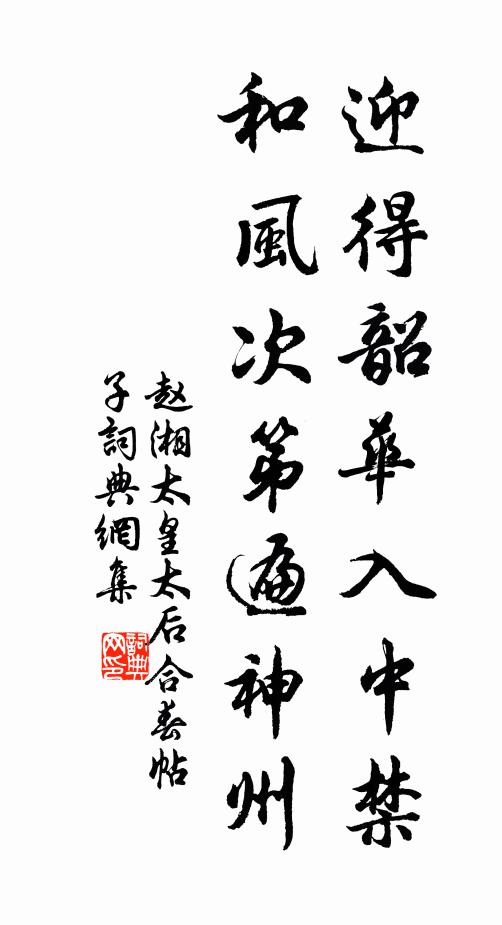 迎得韶華入中禁
和風次第遍神州
赵湘太皇太后合春帖
子詞典網集
詞典
网印